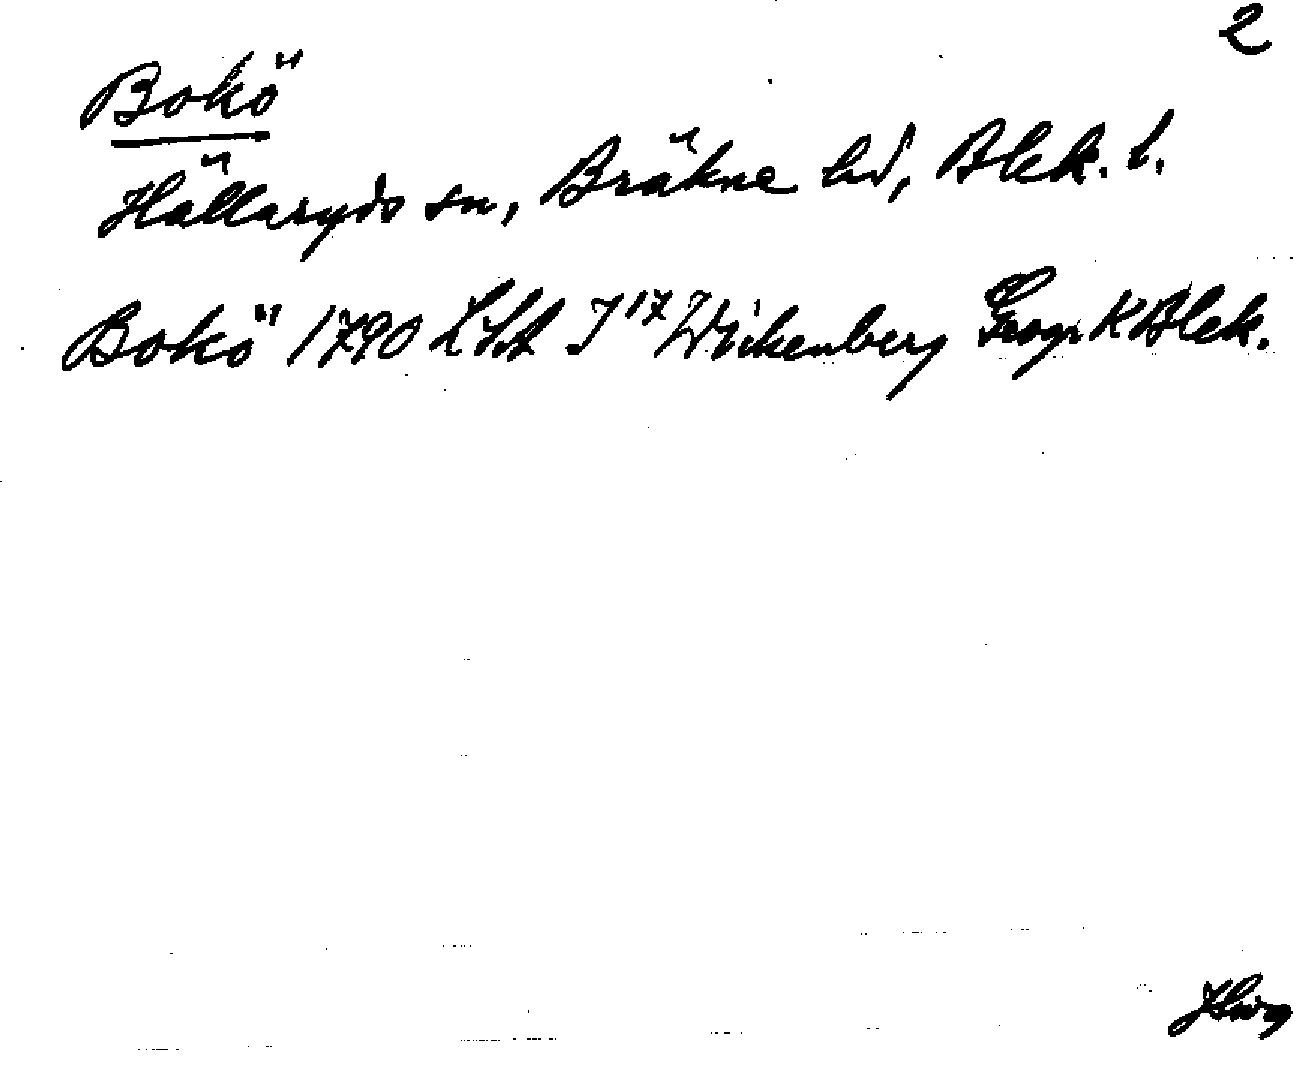 2
Bokö
Hällaryds sn, Bräkne hd, Blek. l.
Bokö 1790 LSA I 17 Wickenberg Geogr K Blek.